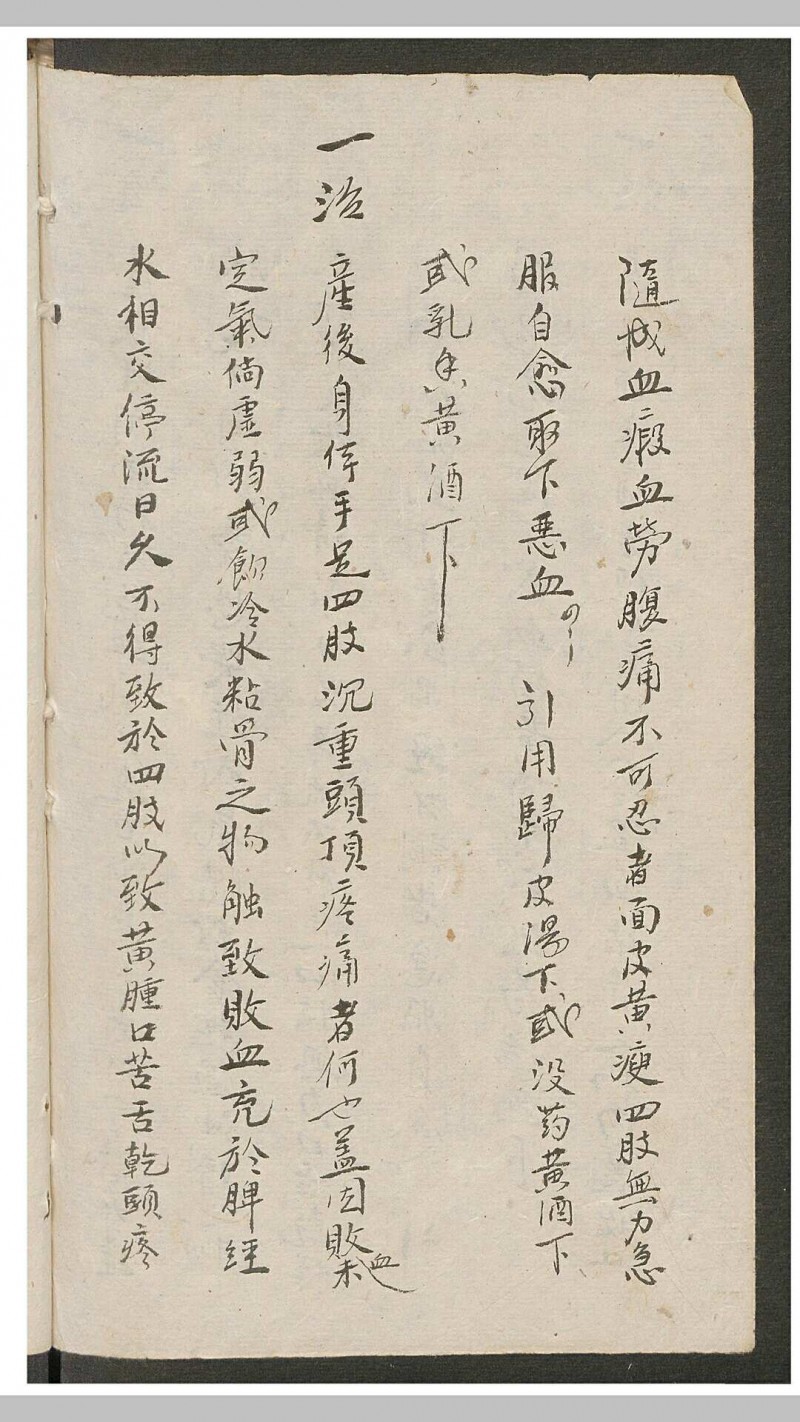 隨成血瘕血勞腹痛不可忍者面皮黃瘦四肢無力急
服自愈取下惡血 引用歸皮湯下或没药黃酒下
或乳香黃酒下
一治 產後身体手足四肢沉重頭頂疼痛者何也盖因敗血未
定氣倘虛弱或飲冷水粘骨之物触致敗血充於脾經
水相交停流日久不得致於四肢以致黃腫口苦舌乾頭疼